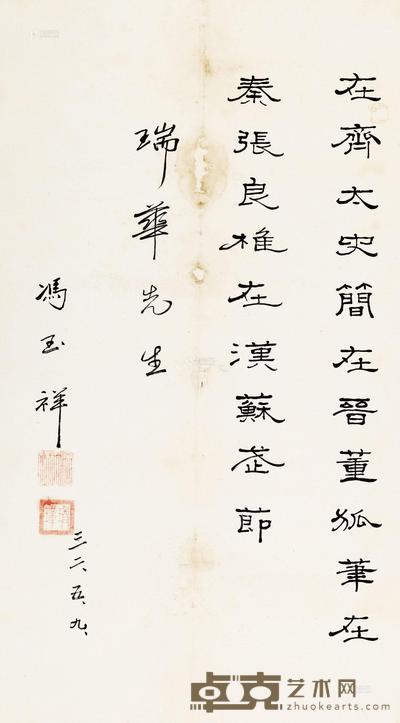 在齊太史簡在晉董狐筆在
秦張良椎在漢蘇武節
瑞華先生
馮玉祥
三二、五、九、
卓克艺术网
www.zhuokearts.com